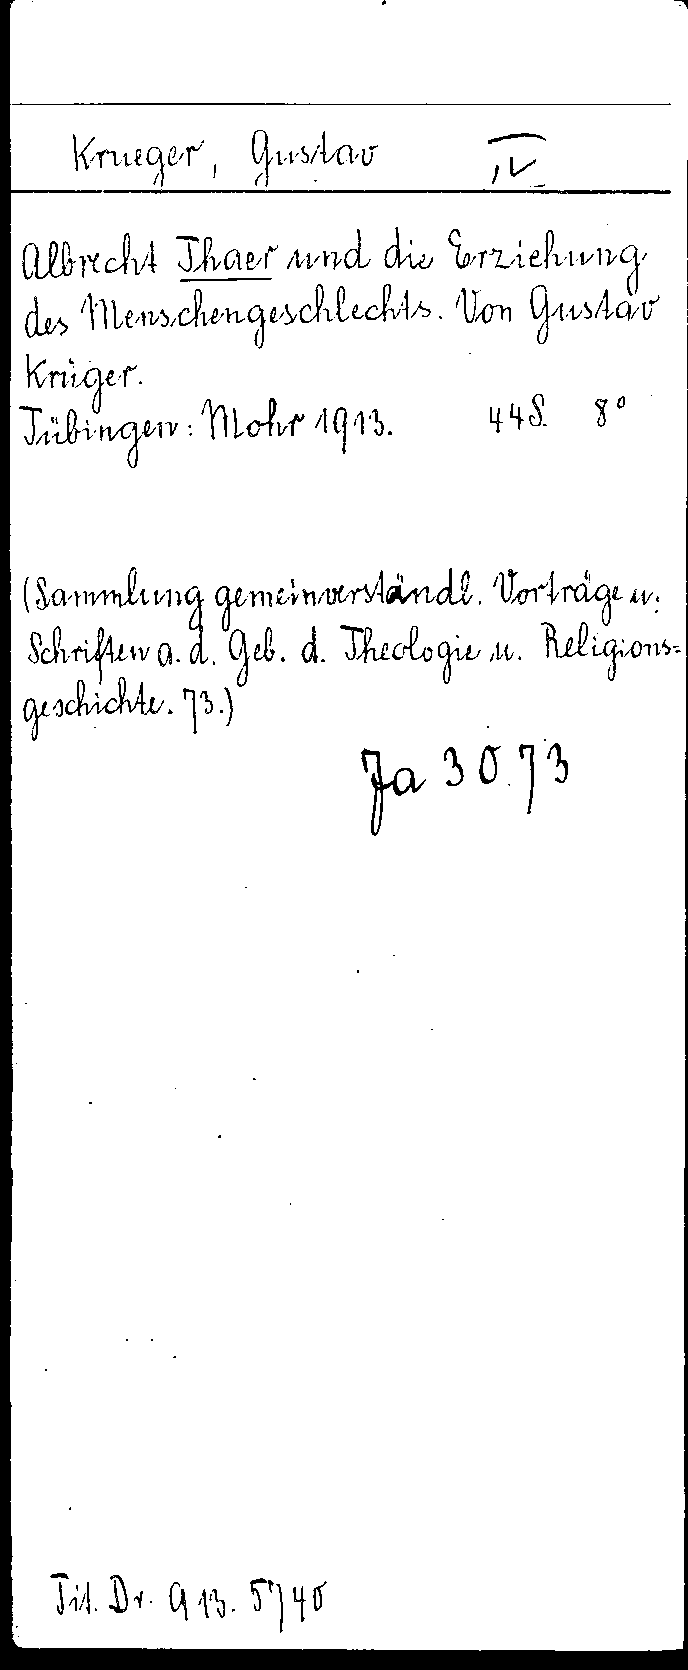 Krueger, Gustav IV
Albrecht Thaer und die Erziehung
des Menschengeschlechts. Von Gustav
Krüger.
Tübingen: Mohr 1913. 44 S. 8°
(Sammlung gemeinverständl. Vorträge u.
Schriften a. d. Geb. d. Theologie u. Religions=
geschichte. 73.)
Ja 30.73
Tit. Dr. G 13. 5740